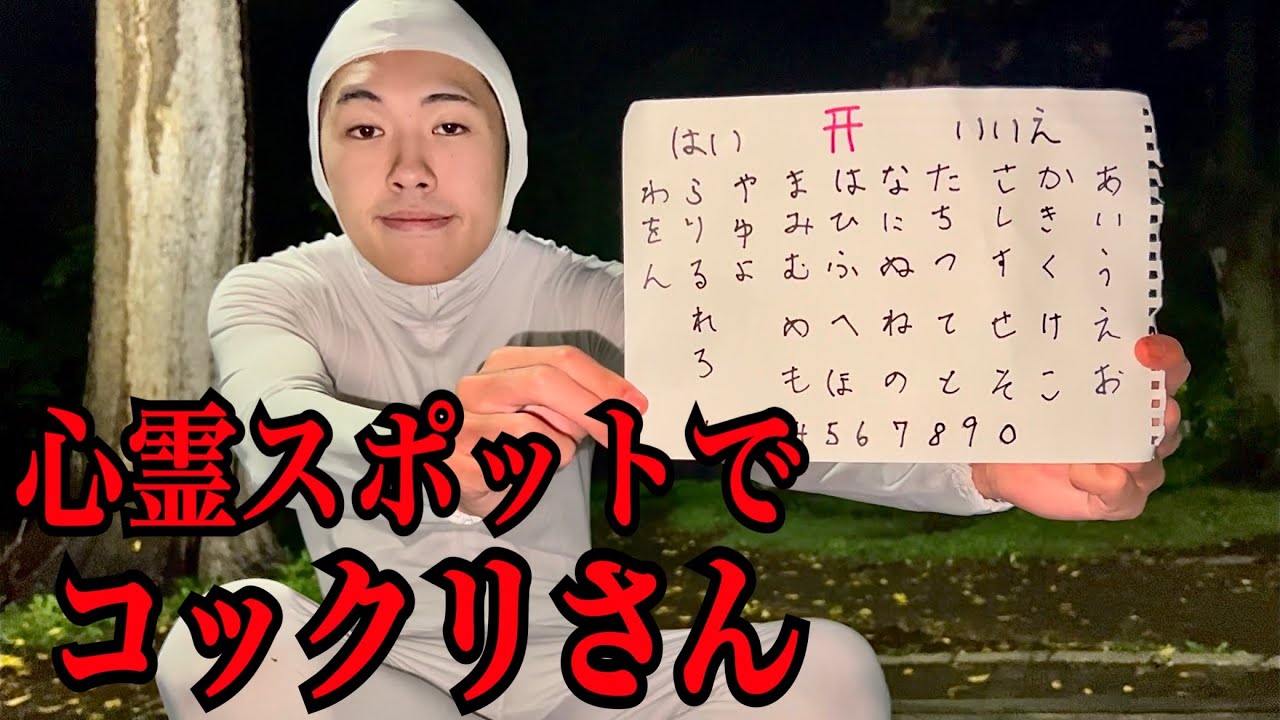 はい いいえ
あいうえお
かきくけこ
さしすせそ
たちつてと
なにぬねの
はひふへほ
まみむめも
やゆよ
らりるれろ
わをん
4 5 6 7 8 9 0
心霊スポットで
コックリさん